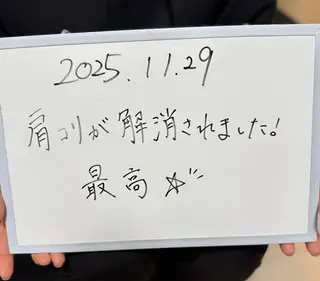 2025.11.29
肩コリが解消されました!
最高☆